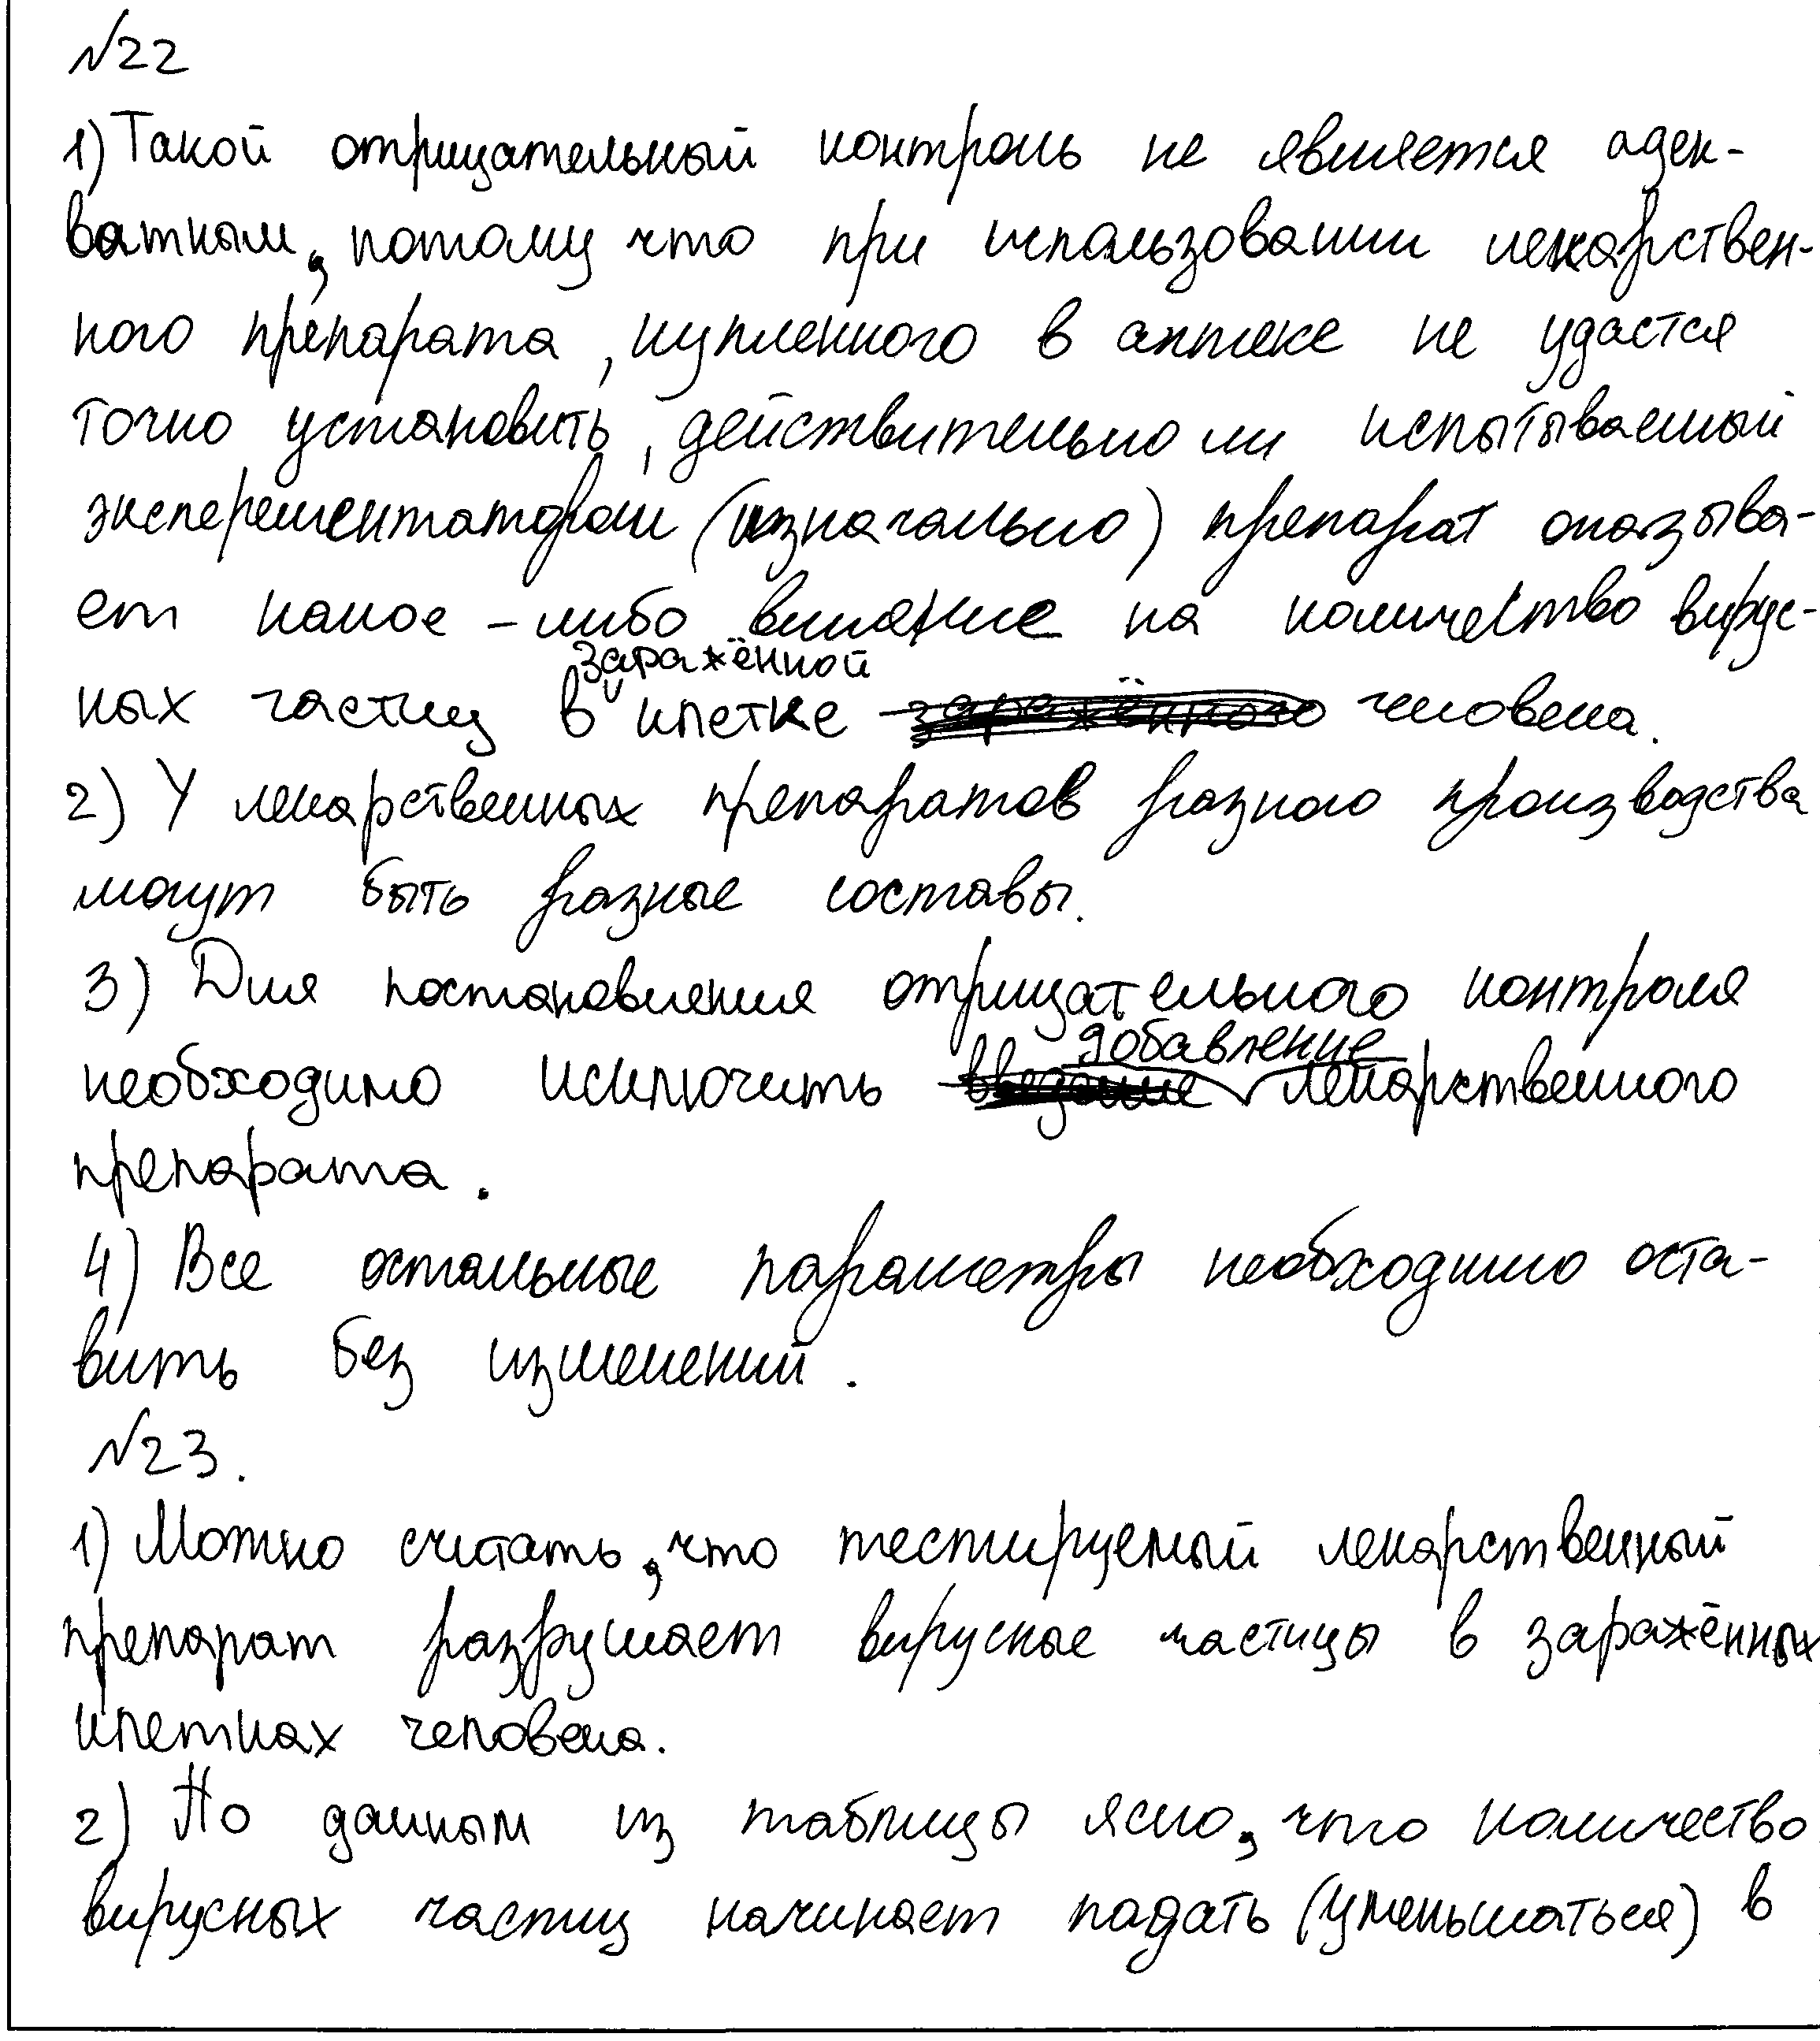 №22
1) Такой отрицательный контроль не является адек-
ватным, потому что при использовании лекарствен-
ного препарата, купленного в аптеке не удастся
точно установить, действительно ли испытываемый
эксперементатором (изначально) препарат оказыва-
ет какое-либо влияние на количество вирус-
ных частиц в заражённой клетке человека.
2) У лекарственных препаратов разного производства
могут быть разные составы.
3) Для постановления отрицательного контроля
необходимо исключить добавление лекарственного
препарата.
4) Все остальные параметры необходимо оста-
вить без изменений.
№23.
1) Можно считать, что тестируемый лекарственный
препарат разрушает вирусные частицы в заражённых
клетках человека.
2) По данным из таблицы ясно, что количество
вирусных частиц начинает падать (уменьшаться) в